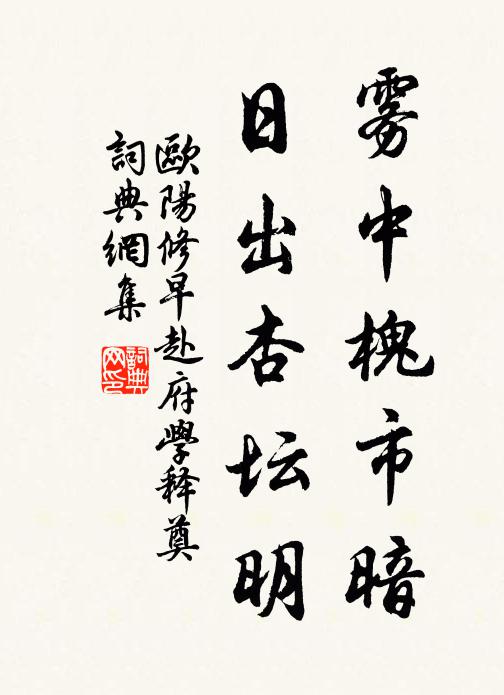 雾中槐市暗
日出杏坛明
歐陽修早赴府學释奠
詞典網集
詞典网印